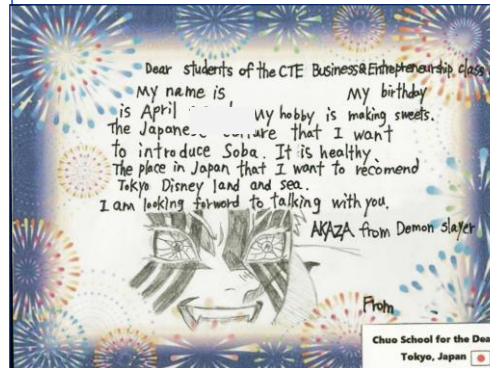 Dear students of the CTE Business & Entrepreneurship class
My name is My birthday
is April My hobby is making sweets.
The Japanese culture that I want
to introduce Soba. It is healthy
The place in Japan that I want to recomend
Tokyo Disney land and sea.
I am looking forward to talking with you.
AKAZA from Demon slayer
From
Chuo School for the Dea
Tokyo, Japan